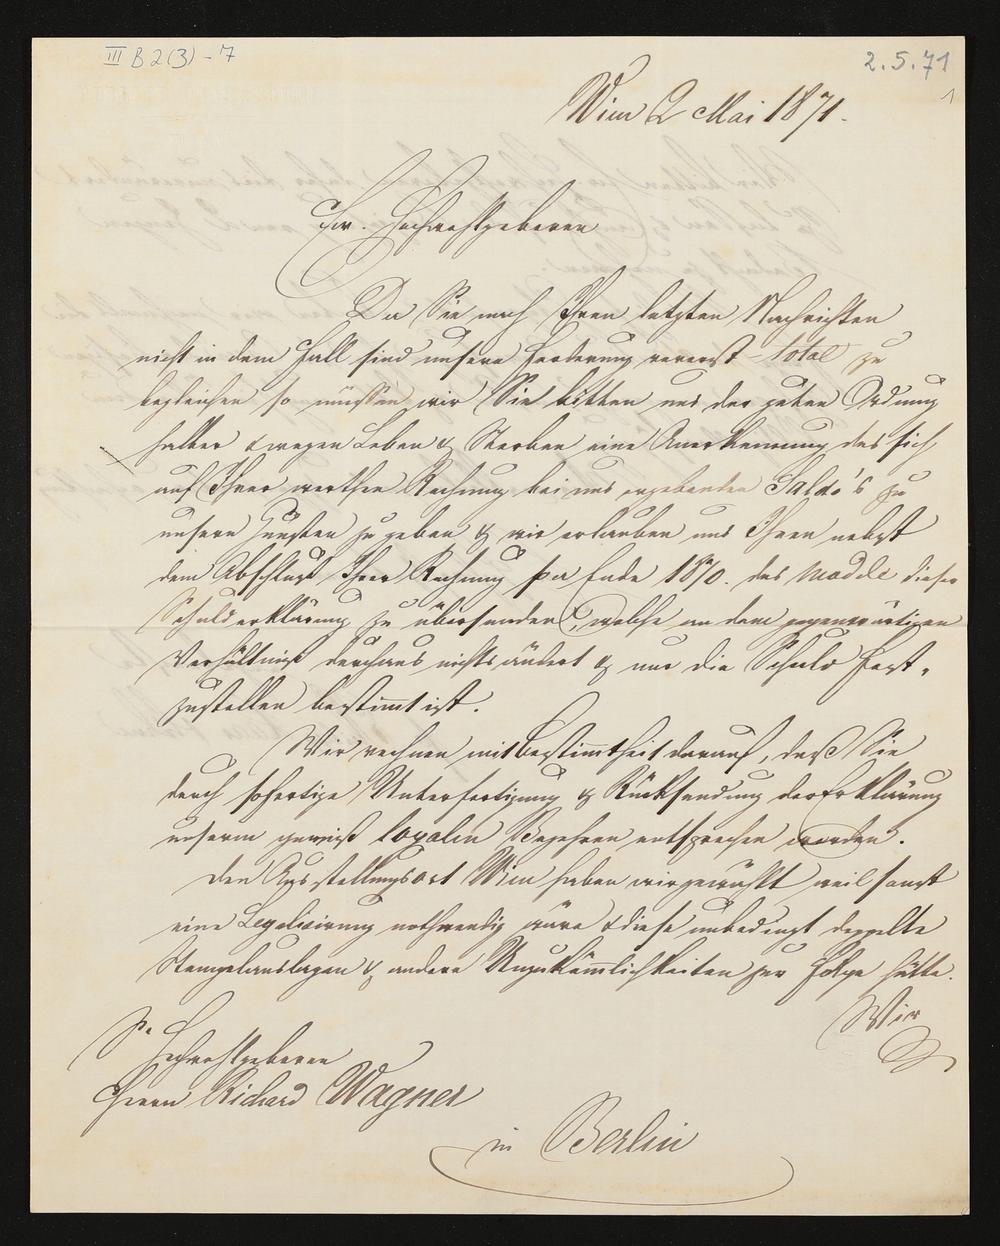 III B 2(3) - 7
2.5.71
1
Wien 2 Mai 1871.
Ew. Hochwohlgeboren
Da Sie nach Ihren letzten Nachrichten
nicht in dem Fall sind unsere Forderung vorerst total zu
begleichen so müssen wir Sie bitten uns der guten Ordnung
halber & wegen Leben & Sterben eine Anerkennung des sich
auf Ihrer werthen Rechnung bei uns ergebenden Saldo's zu
unsern Gunsten zu geben & wir erlauben uns Ihnen nebst
dem Abschluß Ihrer Rechnung per Ende 1870. das Modele dieser
Schulderklärung zu übersenden, welche an dem gegenwärtigen
Verhältniß durchaus nichts ändert & nur die Schuld fest-
zustellen bestimmt ist.
Wir rechnen mit Bestimmtheit darauf, daß Sie
durch sofortige Unterfertigung & Rücksendung der Erklärung
unserm gewiß loyalen Begehren entsprechen werden.
Den Ausstellungsort Wien haben wir gewählt weil sonst
eine Legalisirung nothwendig wäre & diese unbedingt doppelte
Stempelauslagen & andere Unzukömmlichkeiten zur Folge hätte.
Wir
Sr Hochwohlgeboren
Herrn Richard Wagner
in Berlin